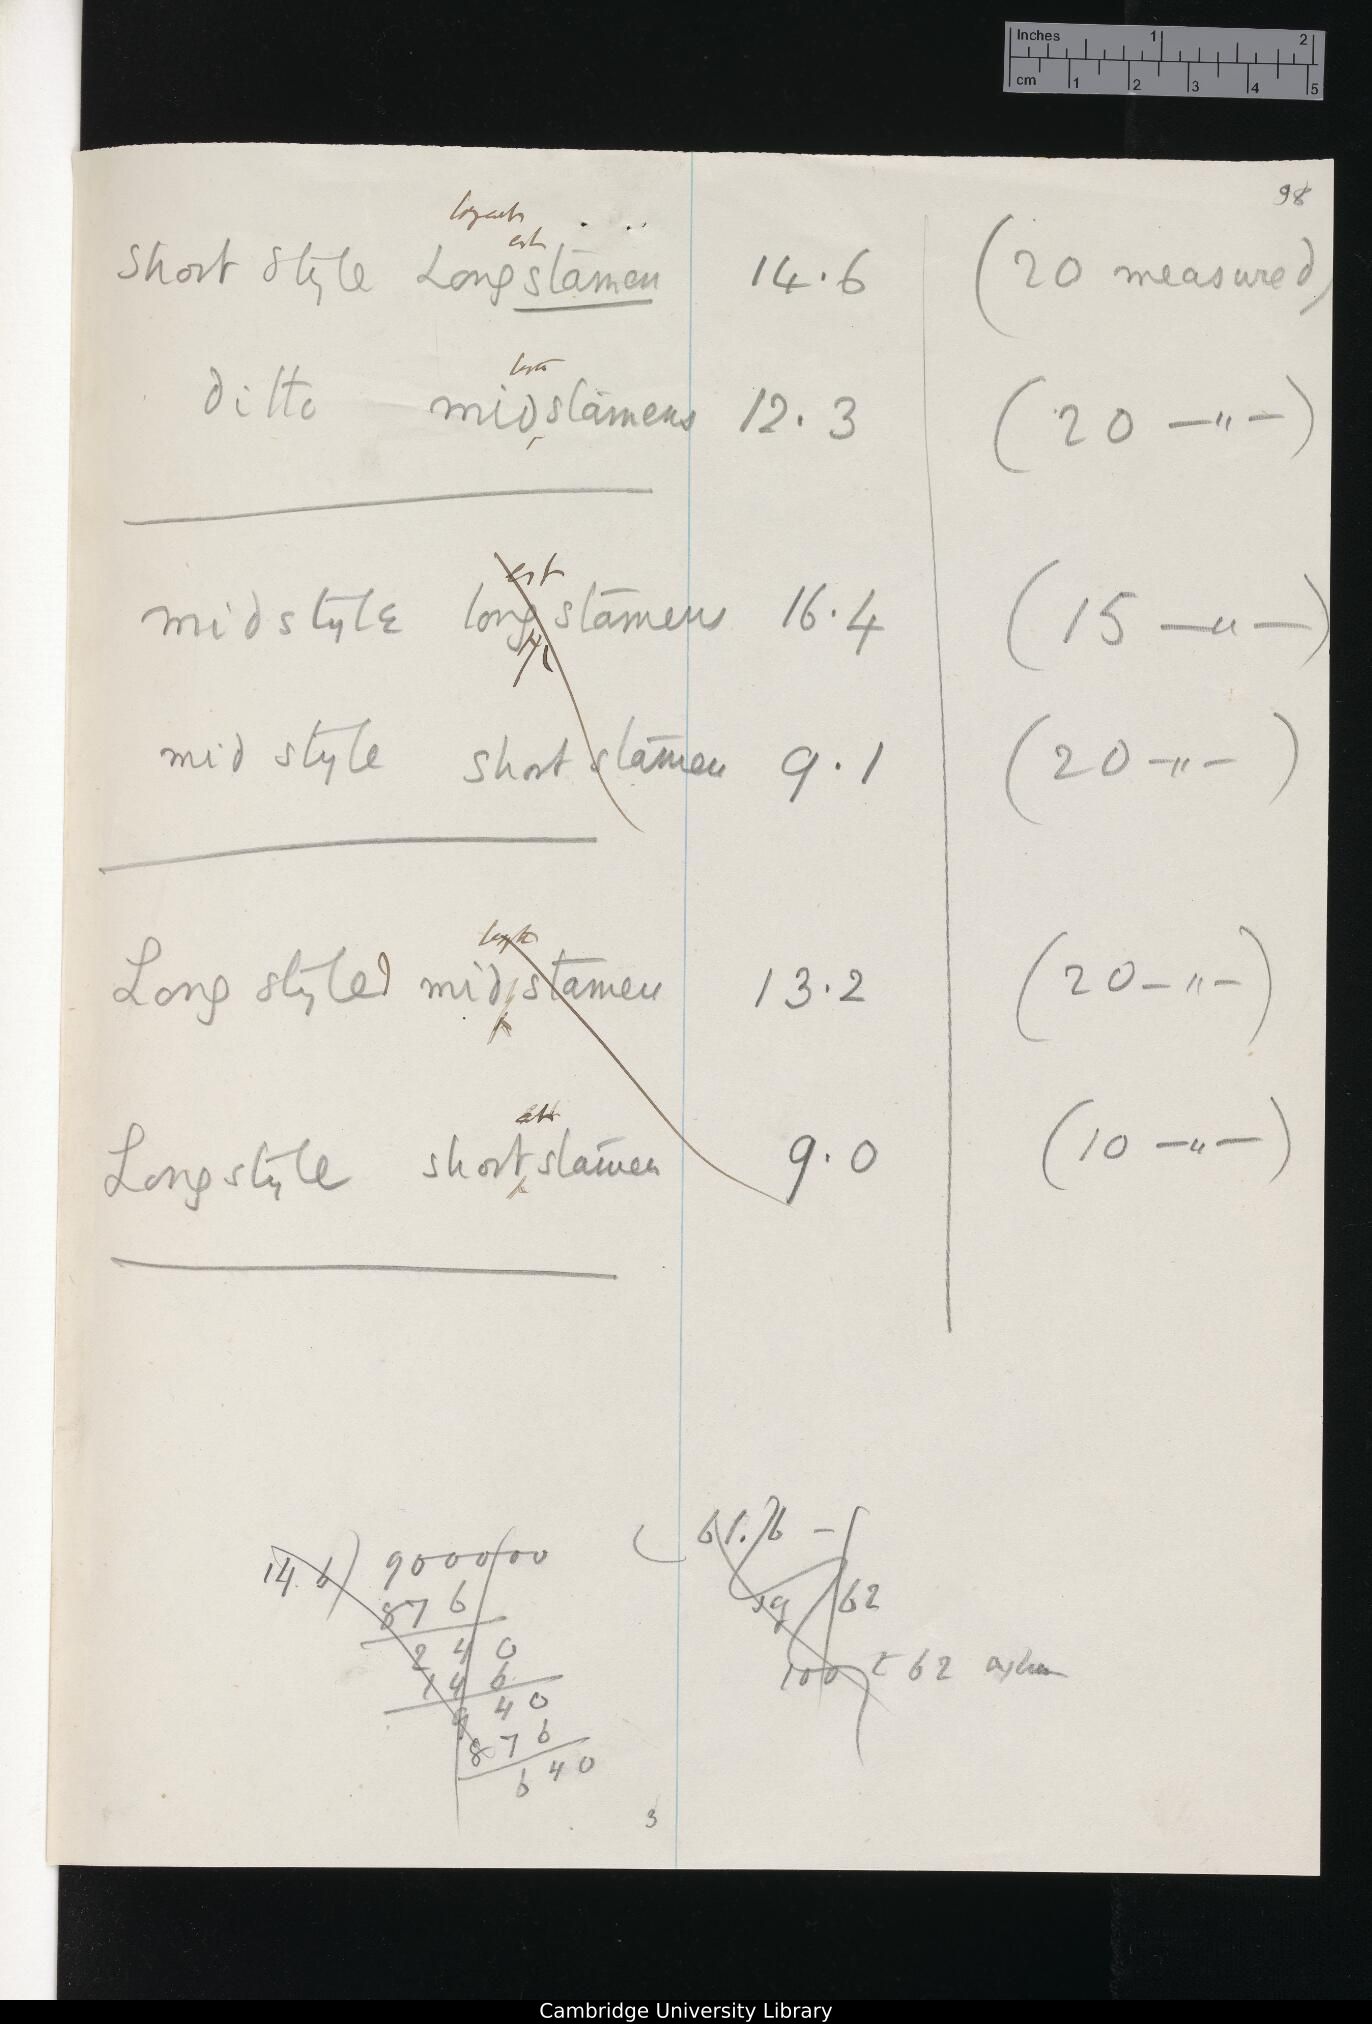 Inches 1 2
cm 1 2 3 4 5
98
est
Short style Long stamen 14.6 (20 measured)
ditto mid stamens 12.3 (20 —〃—)
est
mid style long stamens 16.4 (15 —〃—)
mid style short stamen 9.1 (20 —〃—)
Long styled mid stamen 13.2 (20 —〃—)
est
Long style short stamen 9.0 (10 —〃—)
14.6) 9000000 61.76 —
876 39 62
240 100 62
146
940
876
640
3
Cambridge University Library